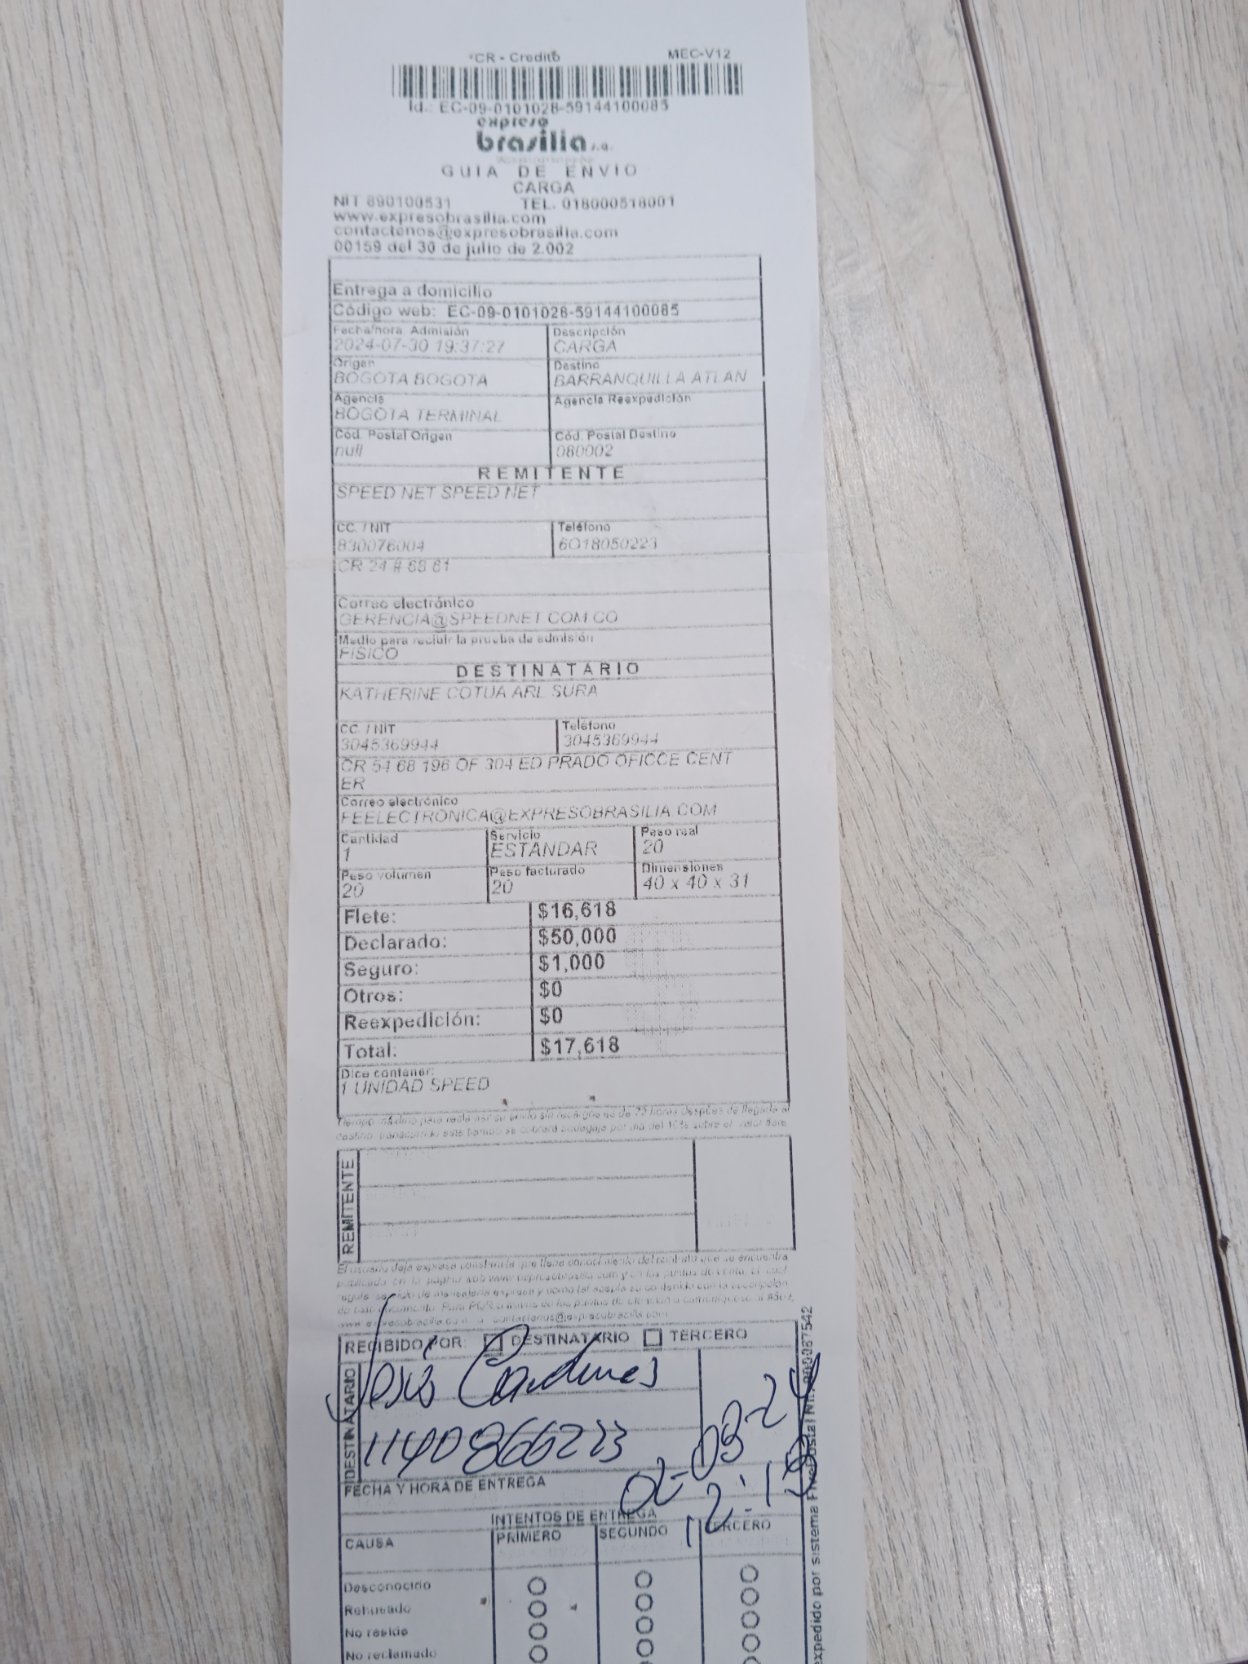 *CR - Credito MEC-V12
Id.: EC-09-0101028-59144100085
expreso
brasilia s.a.
GUIA DE ENVIO
CARGA
NIT 890100531 TEL. 018000518001
www.expresobrasilia.com
contactenos@expresobrasilia.com
00159 del 30 de julio de 2.002
Entrega a domicilio
Código web: EC-09-0101028-59144100085
Fecha/hora Admisión Descripción
2024-07-30 19:37:27 CARGA
Origen Destino
BOGOTA BOGOTA BARRANQUILLA ATLAN
Agencia Agencia Reexpedición
BOGOTA TERMINAL
Cód. Postal Origen Cód. Postal Destino
null 080002
REMITENTE
SPEED NET SPEED NET
CC. / NIT Teléfono
830076004 6018050223
CR 24 # 63 61
Correo electrónico
GERENCIA@SPEEDNET.COM.CO
Medio para recibir la prueba de admisión
FISICO
DESTINATARIO
KATHERINE COTUA ARL SURA
CC. / NIT Teléfono
3045369944 3045369944
CR 54 68 196 OF 304 ED PRADO OFICCE CENT
ER
Correo electrónico
FEELECTRONICA@EXPRESOBRASILIA.COM
Cantidad Servicio Peso real
1 ESTANDAR 20
Peso volumen Peso facturado Dimensiones
20 20 40 x 40 x 31
Flete: $16,618
Declarado: $50,000
Seguro: $1,000
Otros: $0
Reexpedición: $0
Total: $17,618
Dice contener:
1 UNIDAD SPEED
REMITENTE
RECIBIDO POR: DESTINATARIO TERCERO
DESTINATARIO
Jesús Cardenas
1140866223
02-08-24
FECHA Y HORA DE ENTREGA
INTENTOS DE ENTREGA
CAUSA PRIMERO SEGUNDO TERCERO
Desconocido
Rehusado
No reside
No reclamado